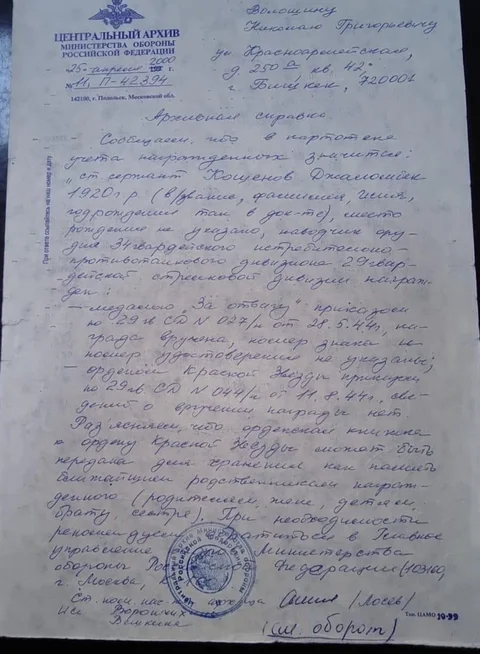 ЦЕНТРАЛЬНЫЙ АРХИВ
МИНИСТЕРСТВА ОБОРОНЫ
РОССИЙСКОЙ ФЕДЕРАЦИИ
25 апреля 2000 г.
№ 11, П-42394
142100, г. Подольск, Московской обл.
При ответе ссылайтесь на наш номер и дату
Волошину
Николаю Григорьевичу
ул. Красноармейская,
д. 250 а кв. 42
г. Бишкек, 720001
Архивная справка.
Сообщаем, что в картотеке
учета награжденных значится:
"ст. сержант Кошенов
1920 г.р. (в/звание, фамилия, имя,
год рождения так в док-те), место
рождения не указано, наводчик ору-
дия 34 гвардейского истребительно-
противотанкового дивизиона 29 гвар-
дейской стрелковой дивизии награж-
ден:
— медалью "За отвагу" приказом
по 29 гв СД N 027/н от 28.5.44г, на-
града вручена, номер знака и
номер удостоверения не указаны;
— орденом Красной Звезды приказом
по 29 гв. СД N 044/н от 11.8.44г, све-
дений о вручении награды нет.
Разъясняем, что орденская книжка
к ордену Красной Звезды может быть
передана для хранения как память
ближайшим родственникам награж-
денного (родителям, жене, детям,
брату сестре). При необходимости
рекомендуем обратиться в Главное
управление Министерства
обороны Российской Федерации (103160,
г. Москва, К-
Ст. архива (Лосев)
Исп.
(см. оборот)
Тип. ЦАМО 10-99